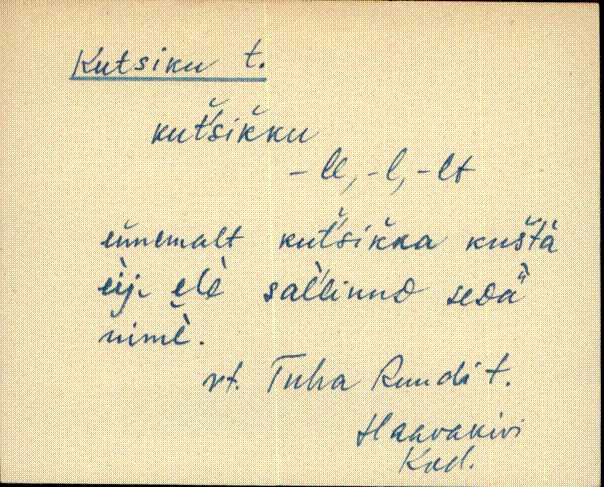 Kutsiku t.
kut̆'sik̆ku
-lle, -l, -lt
ennemalt kut̆'sik̆ka kus̆tà
èij. elè sal̀'linnD seDä̀
nimè.
vt. Tuha Ruudi t.
Haavakivi
Kod.